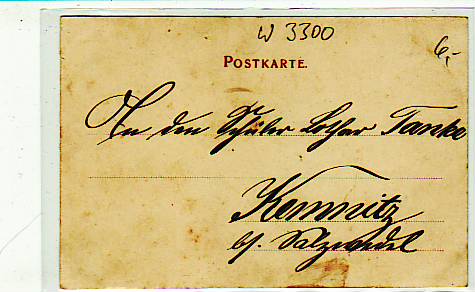 W 3300
6,-
POSTKARTE.
An den Schüler Lothar Tanke
Kemnitz
b/. Salzwedel